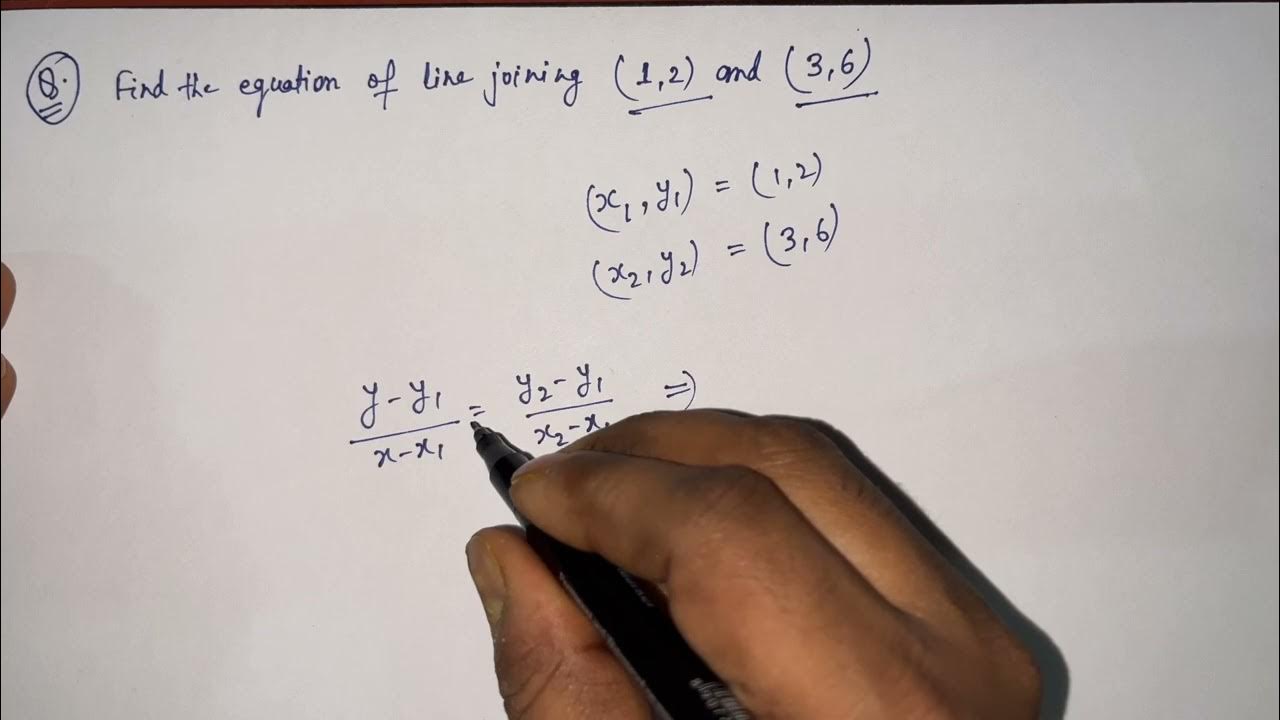 Q. Find the equation of line joining (1,2) and (3,6)
(x₁,y₁) = (1,2)
(x₂,y₂) = (3,6)
y-y₁ / x-x₁ = y₂-y₁ / x₂-x₁ ⇒